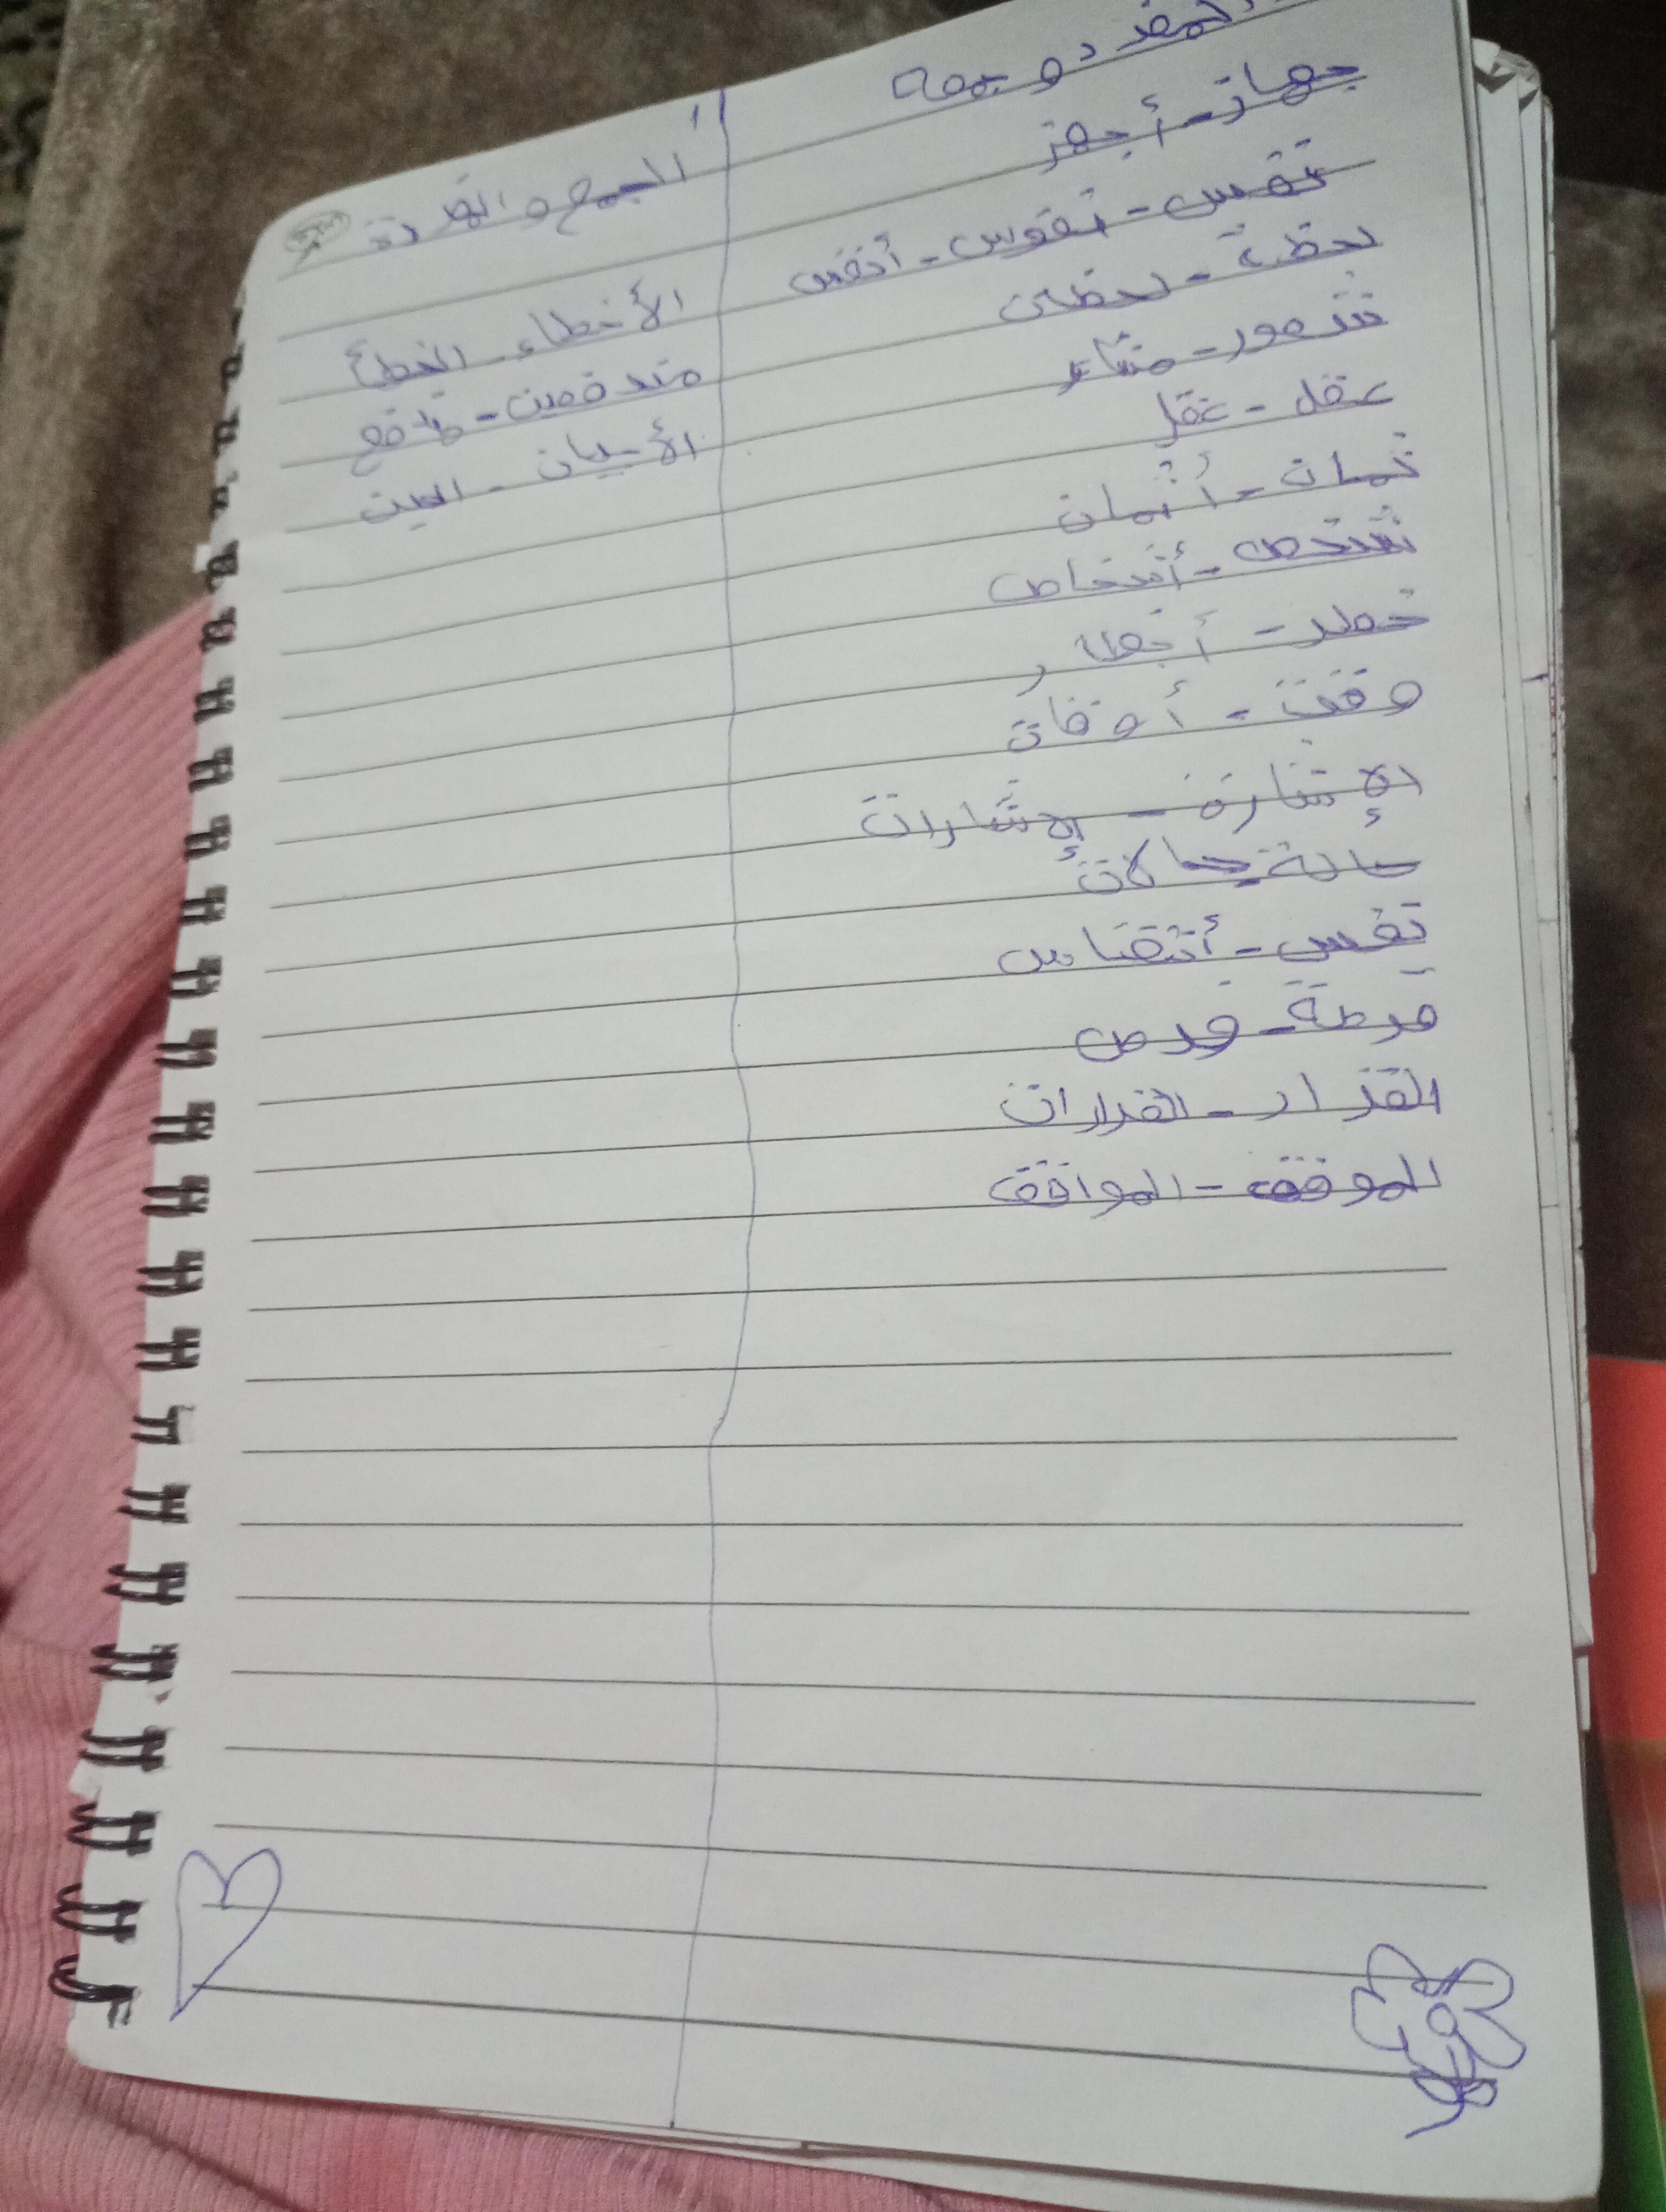 المفرد و جمعه
جهاز - أجهز
نفس - نفوس - أنفس
لحظة - لحظى
شعور - مشاعر
عقل - عقل
ثمان - أثمان
شخص - أشخاص
خطر - أخطار
وقت - أوقات
الإشارة - الإشارات
حالة - حالات
نفس - أنفاس
فرصة - فرص
القرار - القرارات
الموقف - المواقف
الجمع و
الأخطاء - الخطأ
مندفعين - مندفع
الأحيان - الحين